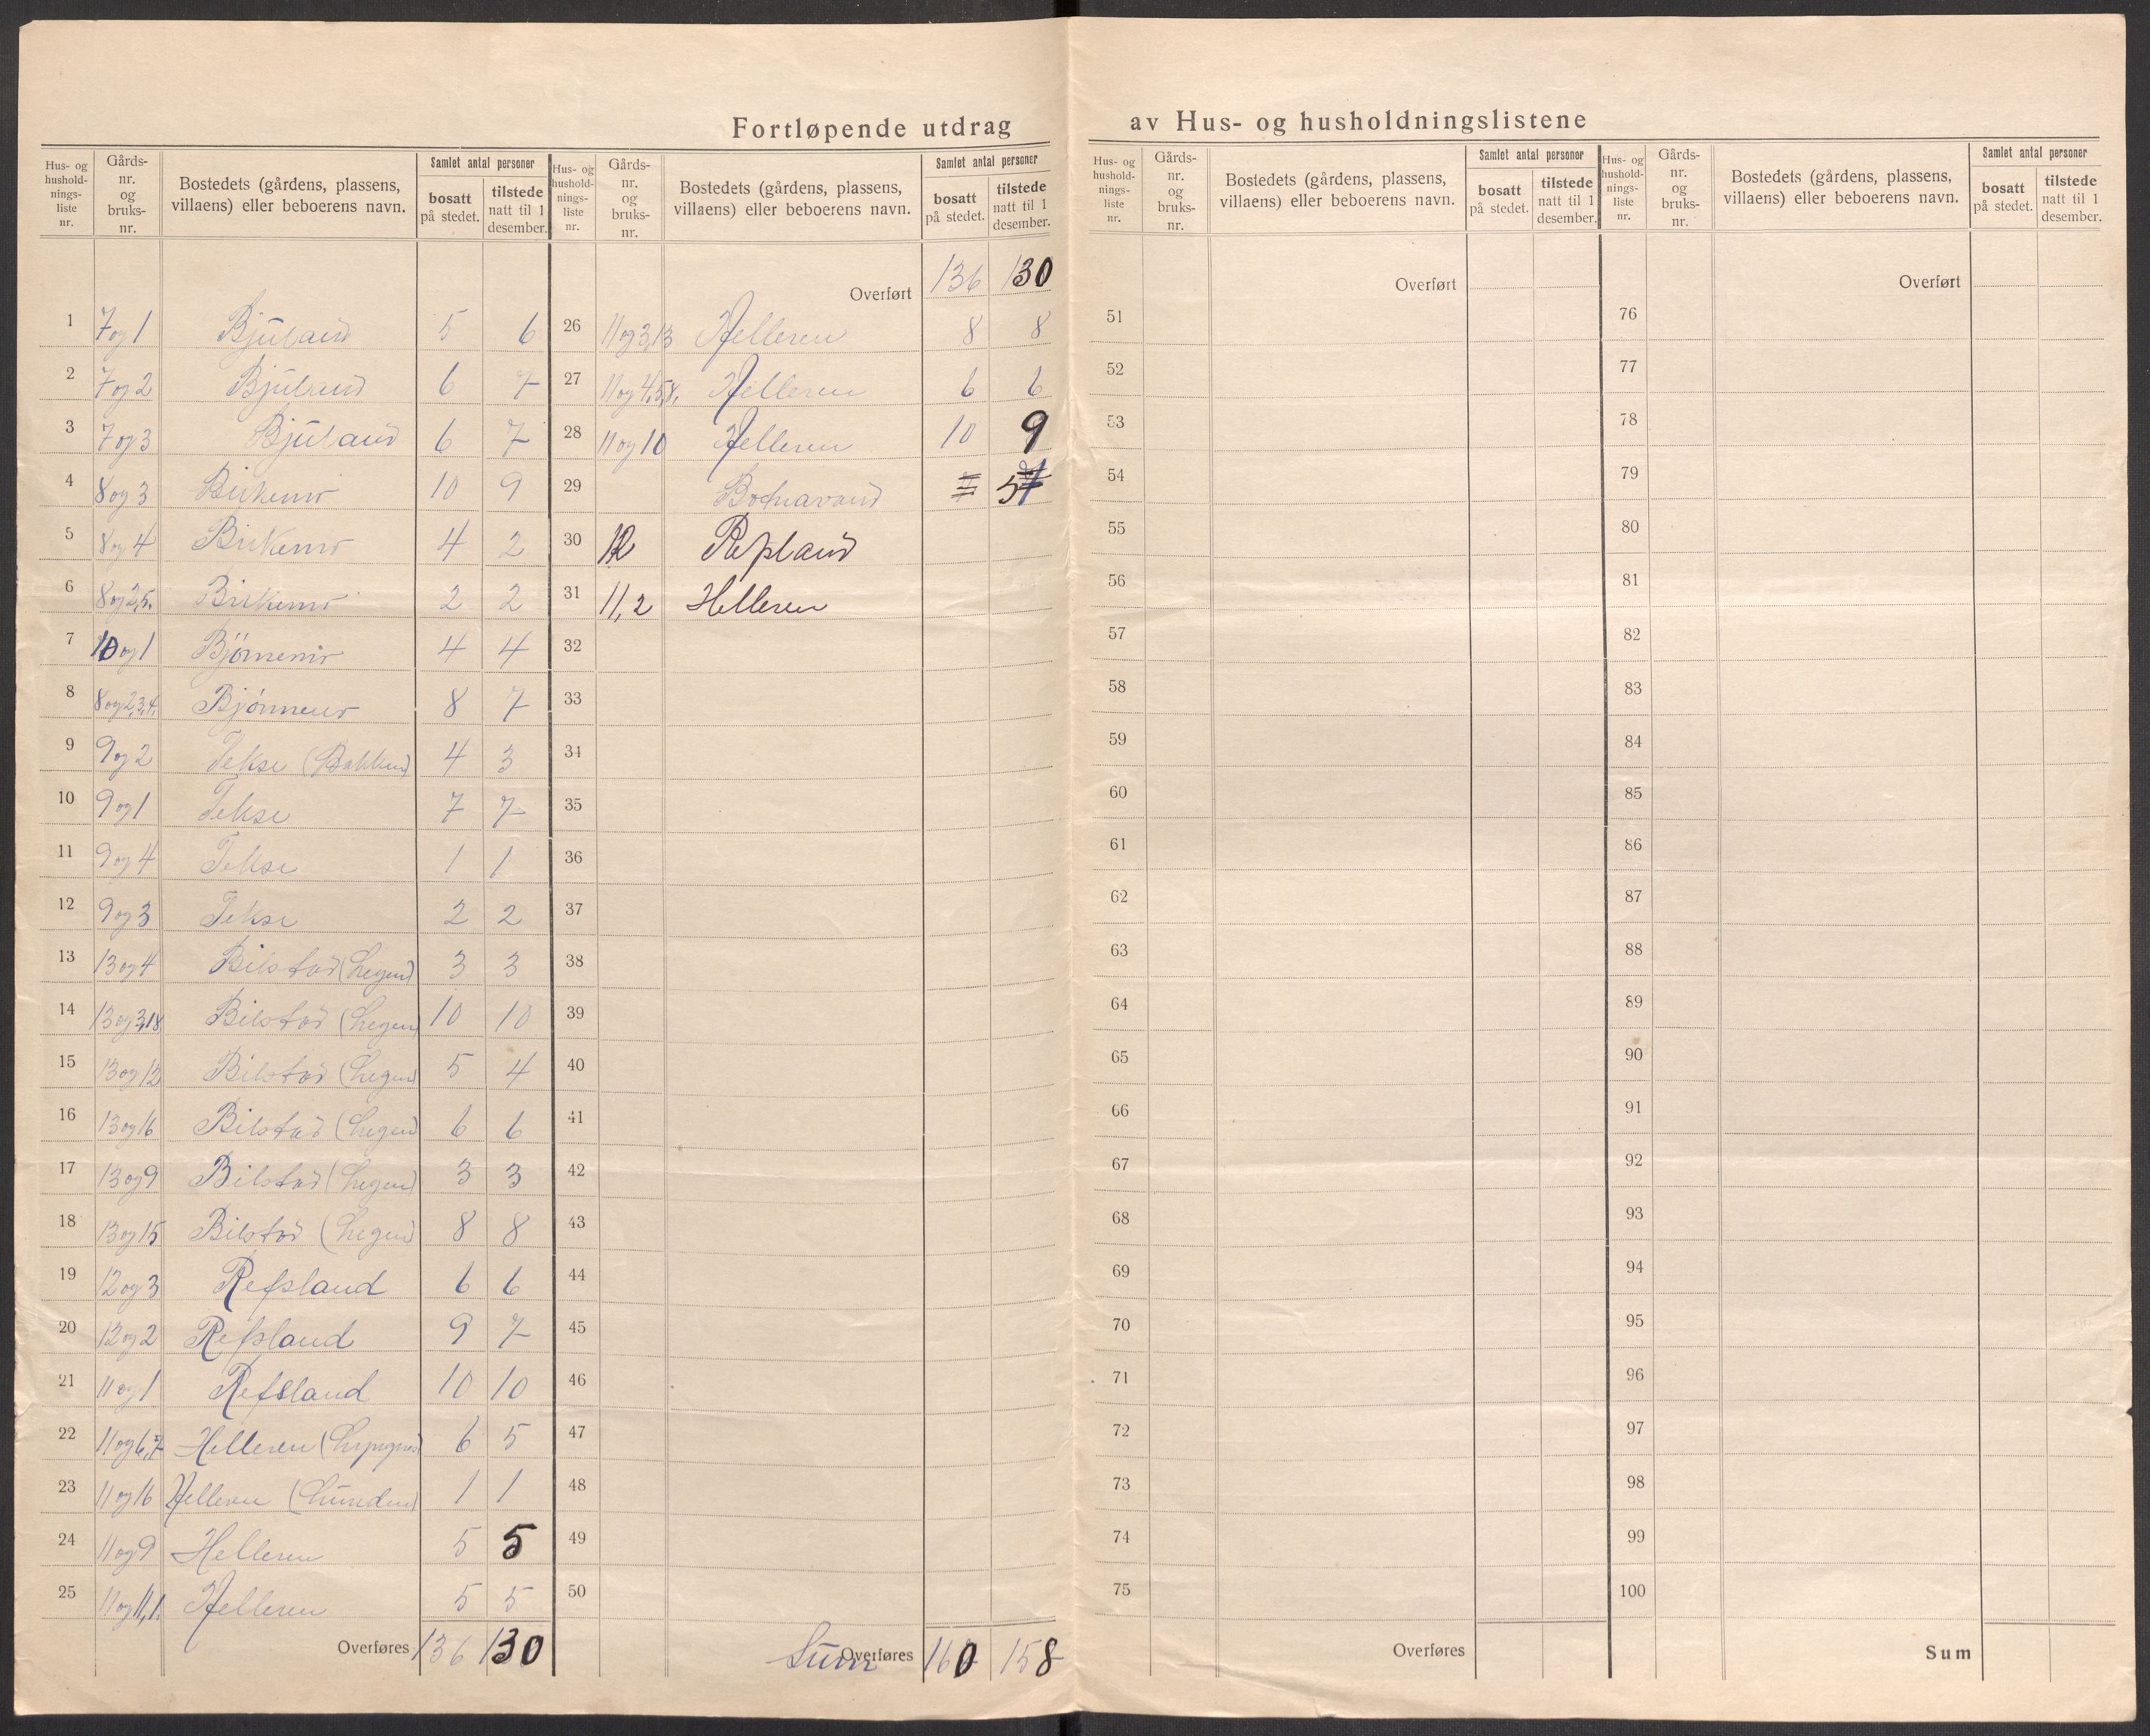 Fortløpende utdrag av Hus- og husholdningslistene
Hus- og hushold-nings-liste nr. | Gårds-nr. og bruks-nr. | Bostedets (gårdens, plassens, villaens) eller beboerens navn. | Samlet antal personer | bosatt på stedet. | tilstede natt til 1 desember.
1 7og1 Bjuland 5 6
2 7og2 Bjuland 6 7
3 7og3 Bjuland 6 7
4 8og3 Birkemo 10 9
5 8og4 Birkemo 4 2
6 8og2,5. Birkemo 2 2
7 10og1 Bjørnemo 4 4
8 8og2,3,4. Bjønnemo 8 7
9 9og2 Tekse (Bakken) 4 3
10 9og1 Tekse 7 7
11 9og4 Tekse 1 1
12 9og3 Tekse 2 2
13 13og4 Bilstad (Hegen) 3 3
14 13og3,18 Bilstad (Hegen) 10 10
15 13og12 Bilstad (Hegen) 5 4
16 13og16 Bilstad (Hegen) 6 6
17 13og9 Bilstad (Hegen) 3 3
18 13og15 Bilstad (Hegen) 8 8
19 12og3 Refsland 6 6
20 12og2 Refsland 9 7
21 11og1 Refsland 10 10
22 11og6,7 Helleren 6 5
23 11og16 Helleren (Lunden) 1 1
24 11og9 Helleren 5 5
25 11og11,1. Helleren 5 5
Overføres 136 130
Hus- og hushold-nings-liste nr. | Gårds-nr. og bruks-nr. | Bostedets (gårdens, plassens, villaens) eller beboerens navn. | Samlet antal personer | bosatt på stedet. | tilstede natt til 1 desember.
Overført 136 130
26 11og3,13 Helleren 8 8
27 11og4,5,8. Helleren 6 6
28 11og10 Helleren 10 9
29 Botnavand 5
30 12 Refsland
31 11,2 Helleren
32
33
34
35
36
37
38
39
40
41
42
43
44
45
46
47
48
49
50
Sum Overføres 160 158
Hus- og hushold-nings-liste nr. | Gårds-nr. og bruks-nr. | Bostedets (gårdens, plassens, villaens) eller beboerens navn. | Samlet antal personer | bosatt på stedet. | tilstede natt til 1 desember.
Overført
51
52
53
54
55
56
57
58
59
60
61
62
63
64
65
66
67
68
69
70
71
72
73
74
75
Overføres
Hus- og hushold-nings-liste nr. | Gårds-nr. og bruks-nr. | Bostedets (gårdens, plassens, villaens) eller beboerens navn. | Samlet antal personer | bosatt på stedet. | tilstede natt til 1 desember.
Overført
76
77
78
79
80
81
82
83
84
85
86
87
88
89
90
91
92
93
94
95
96
97
98
99
100
Sum